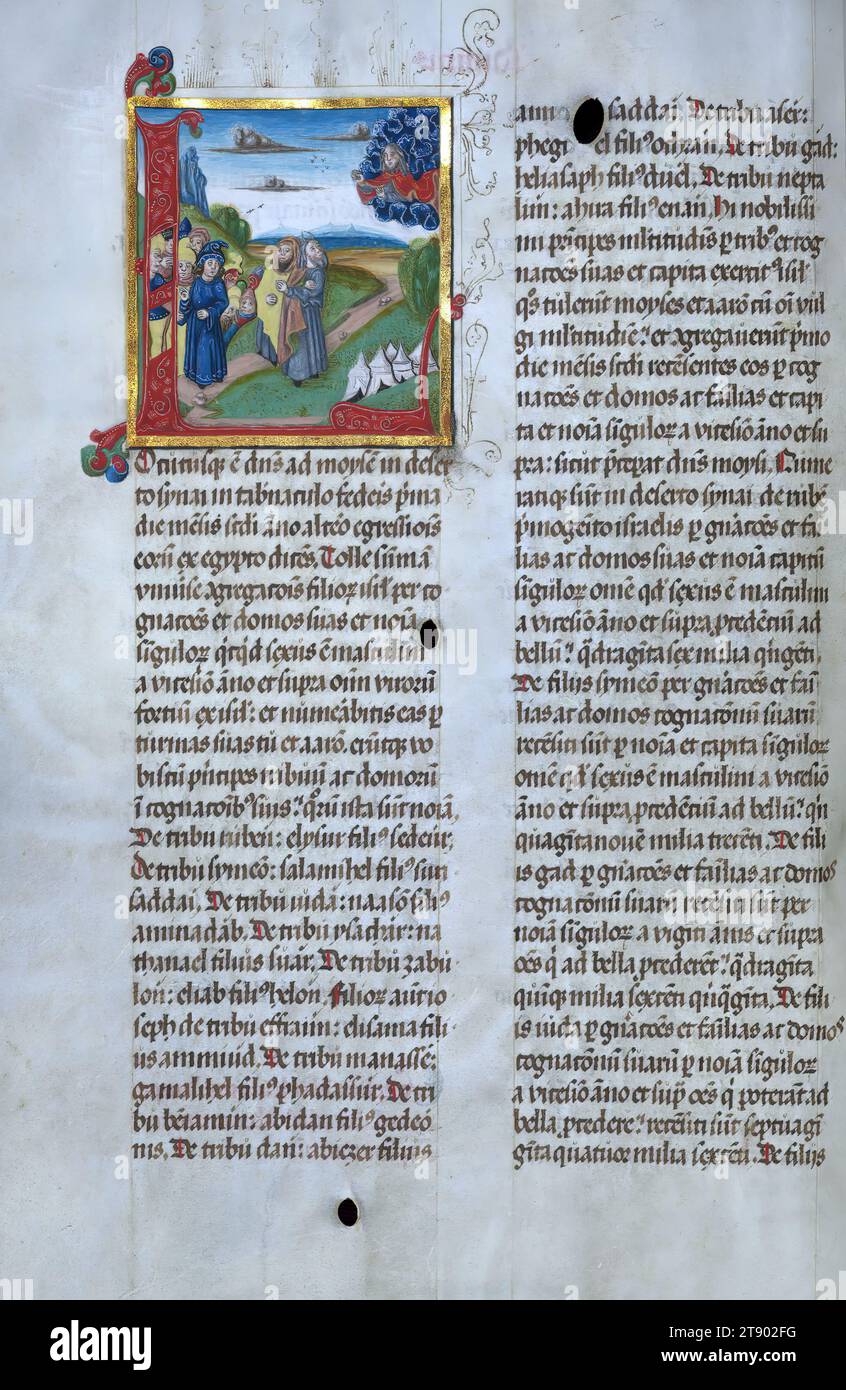 L
Ocutusq̄ ē dn̄s ad moysē in deser
to synai in tab̄naculo federis p̄ma
die mēsis scdi āno alteō egressiōis
eorū ex egypto dicēs. Tolle sūmā
vniuīse agregatōis filioꝝ isrl̄ per co
gnatōes et domos suas et noīa
sīguloꝝ q̄cq̄d sexus ē masculini
a vicesiō āno et supra oīm viroꝝ
fortiū ex isrl̄: et numeābitis eas p̄
turmas suas tu et aarō. erūtq̄ vo
biscū p̄ncipes tribuū ac domorū
ī cognatoīb⁹ suis: q̄rū ista sūt noīa.
De tribu ruben: elysur fili⁹ sedeur.
De tribu symeō: salamihel fili⁹ suri
saddai. De tribu iuda: naasō fili⁹
aminadab. De tribu ysachar: na
thanael filius suar. De tribu zabu
lon: eliab fili⁹ helon. Filioꝝ autē io
seph de tribu effraim: elisama fili
us ammiud. De tribu manasse:
gamalihel fili⁹ phadassur. De tri
bu beniamin: abidan fili⁹ gedeo
nis. De tribu dan: abiezer filius
ami saddai. De tribu aser:
phegi el fili⁹ ochran. De tribu gad:
heliasaph fili⁹ duel. De tribu nepta
lim: ahira fili⁹ enan. Hi nobilissi
mi p̄ncipes ml̄titudīs p̄ trib⁹ et cog
natōes suas et capita exercit⁹ isrl̄
q̄s tulerūt moyses et aarō cū oī vul
gi ml̄titudīe: et agregauerūt p̄mo
die mēsis scdi recēsentes eos p̄ cog
natōes et domos ac fāilias et capi
ta et noīa sīguloꝝ a vicesiō āno et su
pra: sicut p̄ceperat dn̄s moysi. Nume
ratiq̄ sūt in deserto synai de rubē
p̄mogenito israelis p̄ gn̄atōes et fa
lias ac domos suas et noīa capitū
sīguloꝝ om̄e qd̄ sexus ē masculini
a vicesiō āno et supra p̄cedētiū ad
bellū: q̄dragīta sex milia q̄ngēti.
De filiis symeō per gn̄atōes et fāi
lias ac domos cognatōnū suarū
recēsiti sūt p̄ noīa et capita sīguloꝝ
om̄e qd̄ sexus ē masculini a vicesiō
āno et supra p̄cedētiū ad bellū: q̄n
quagīta nouē milia trecēti. De fili
is gad p̄ gn̄atōes et fāilias ac domos
cognatōnū suarū recēsiti sūt per
noīa sīguloꝝ a vigīti ānis et supra
oēs q̄ ad bella p̄cederēt: q̄dragīta
quīq̄ milia sexcēti q̄nq̄gīta. De fili
is iuda p̄ gn̄atōes et fāilias ac domos
cognatōnū suarū p̄ noīa sīguloꝝ
a vicesiō āno et sup̄ oēs q̄ poterāt ad
bella p̄cedere: recēsiti sūt septuagī
gīta quatuor milia sexcēti. De filiis
alamy
Image ID: 2T902FG
www.alamy.com